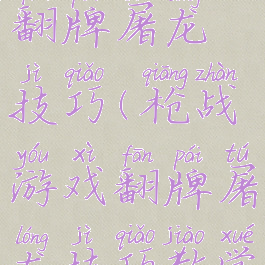 翻牌屠龙
jì qiǎo qiāng zhàn
技巧(枪战
yóu xì fān pái tú
游戏翻牌屠
lóng jì qiǎo jiào xué
龙技巧教学